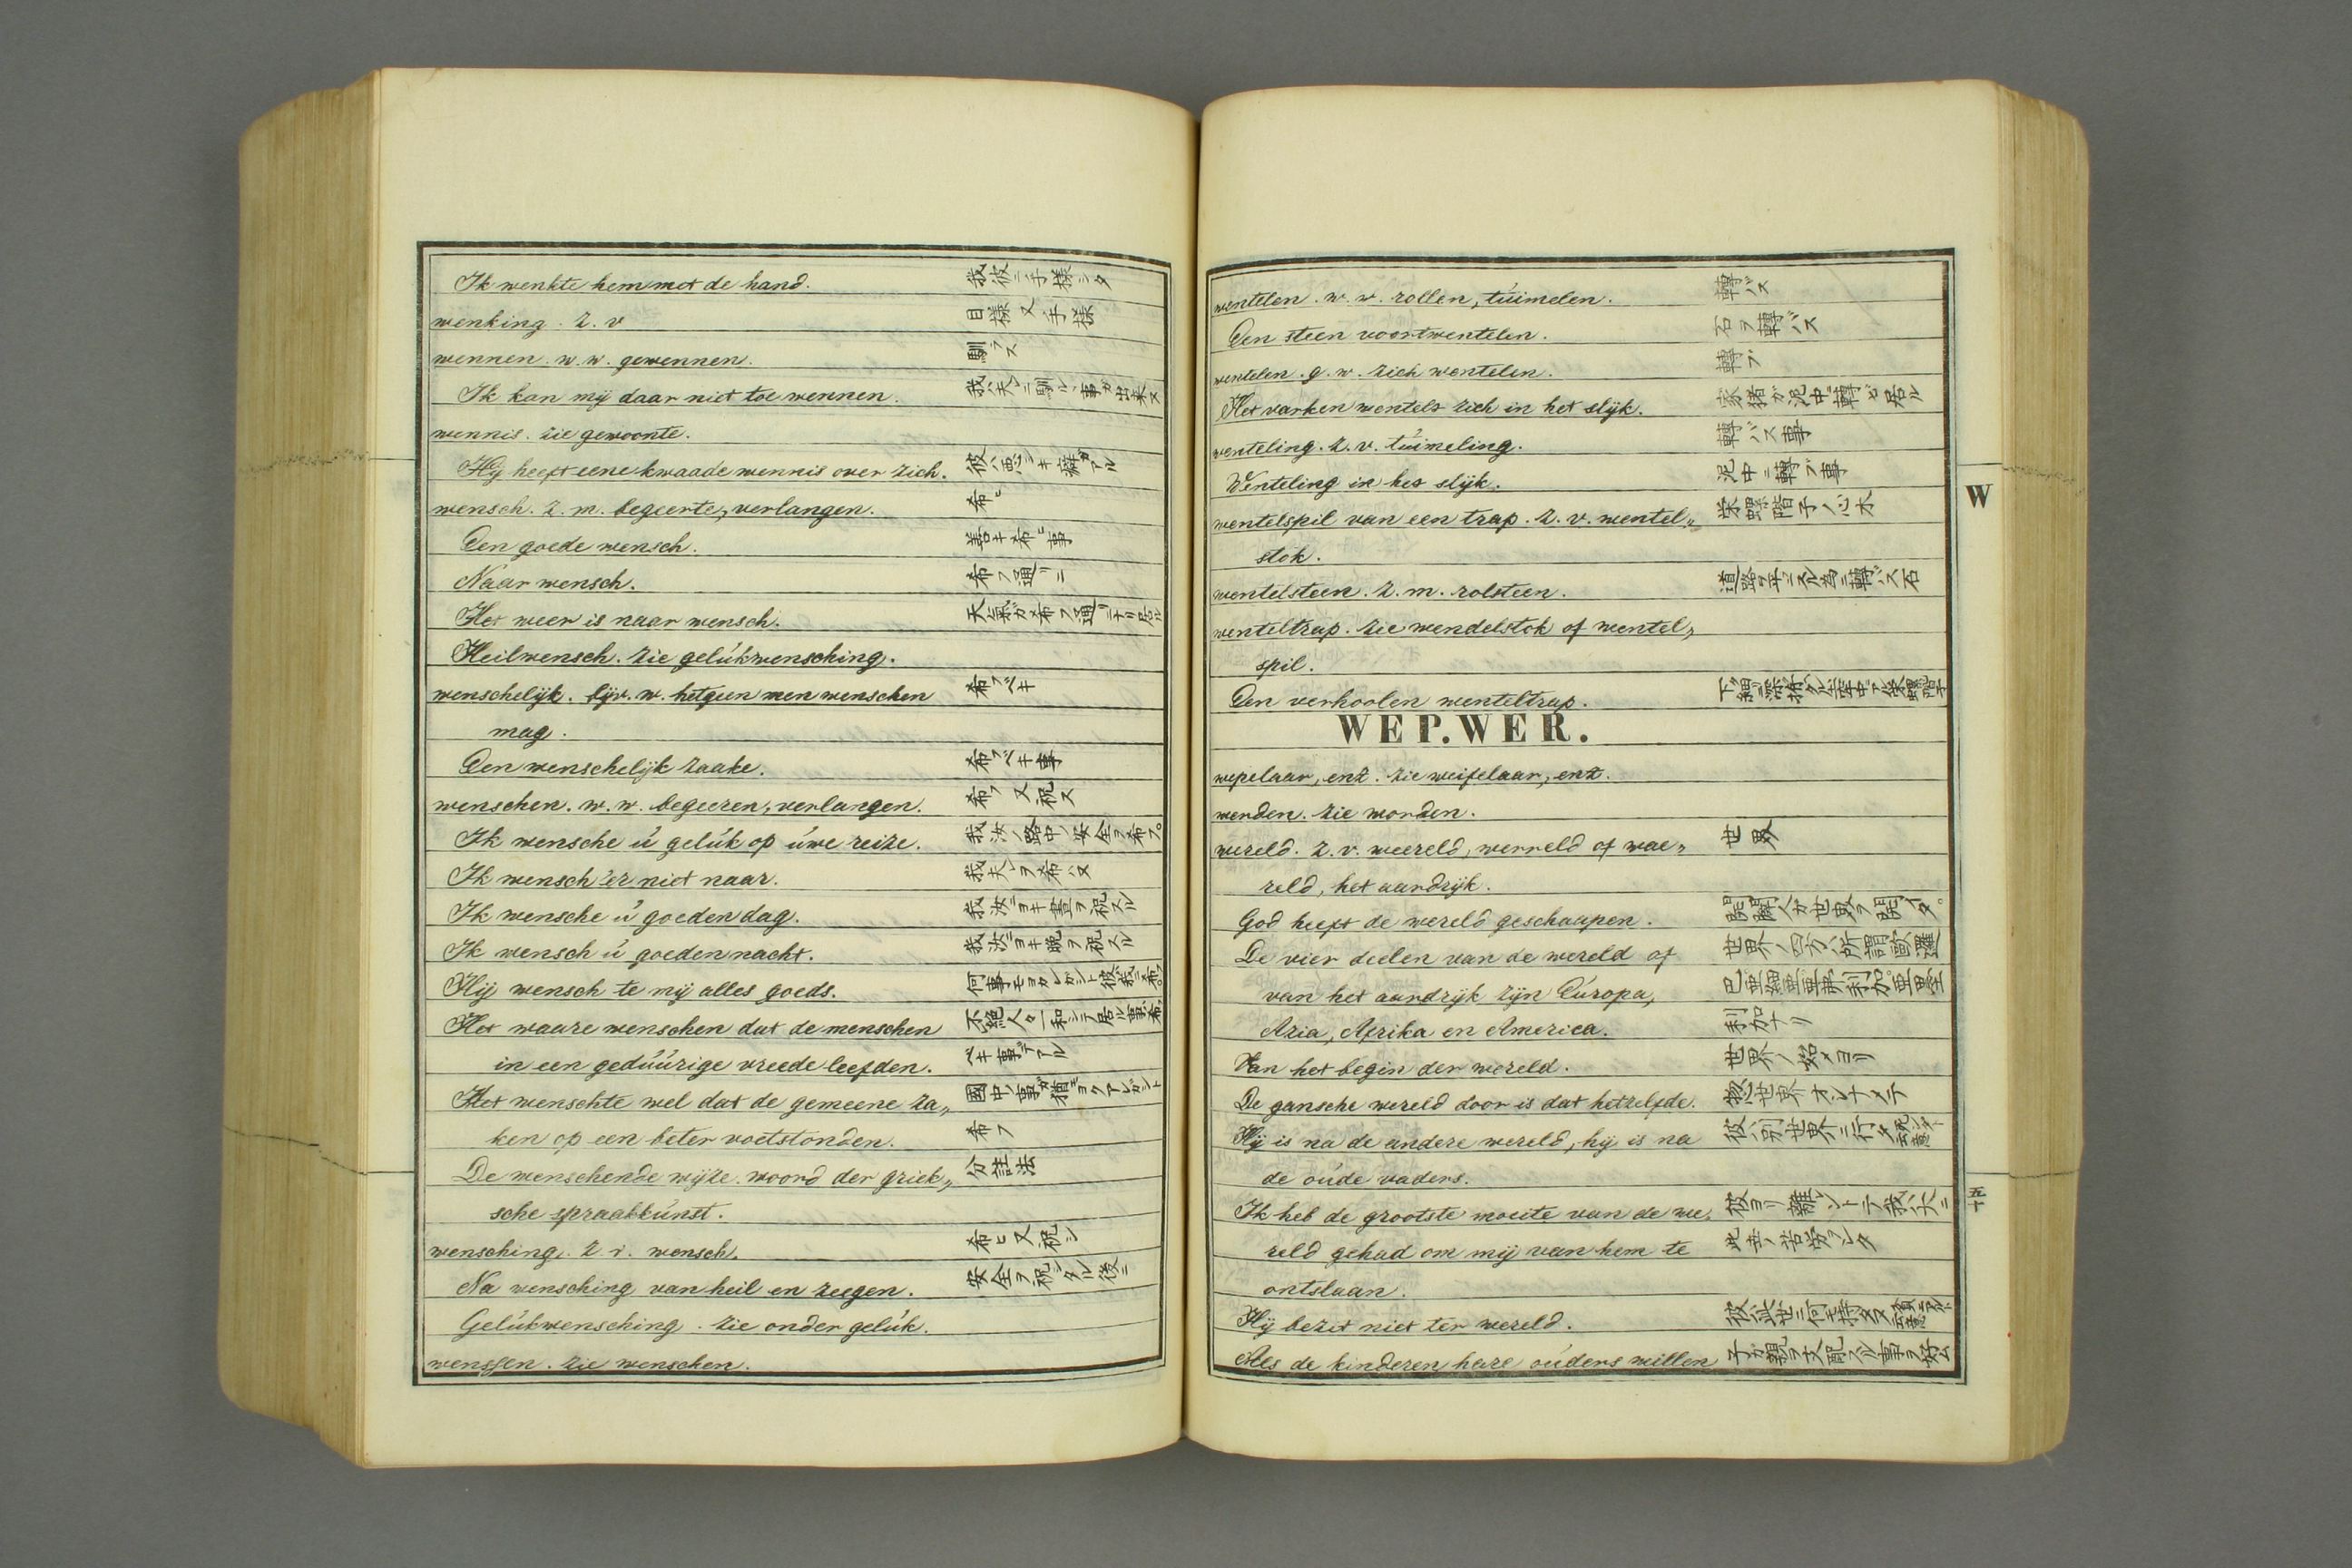 Ik wenkte hem met de hand. 我彼ニ手様シタ
wenking. z. v 目様又手様
wennen. w. w. gewennen. 馴ラス
Ik kan mij daar niet toe wennen. 我ハ夫レニ馴ル事ガ出来ヌ
wennis. zie gewoonte.
Hij heeft eene kwaade wennis over zich. 彼ハ悪シキ癖ガアル
wensch. z. m. begeerte, verlangen. 希ヒ
Een goede wensch. 善キ希ヒ事
Naar wensch. 希フ通リニ
Het weer is naar wensch. 天氣ガ希フ通リニナリ居ル
Heilwensch. zie gelúkwensching.
wenschelijk. bijv. w. hetgeen men wenschen 希フベキ
mag.
Een wenschelijk zaake. 希フベキ事
wenschen. w. w. begeeren, verlangen. 希フ又祝ス
Ik wensche ú gelúk op úwe reize. 我汝ノ路中ノ安全ヲ希フ。
Ik wensch'er niet naar. 我夫レヲ希ハヌ
Ik wensche ú goeden dag. 我汝ニヨキ晝ヲ祝スル
Ik wensch ú goeden nacht. 我汝ニヨキ晩ヲ祝スル
Hij wensch te mij alles goeds. 何事モヨカレカシト彼ハ我ニ希フ
Het waare wenschen dat de menschen 不絶人々一和シテ居ル事ハ希フ
in een gedúúrige vreede leefden. ベキ事デアル
Het wenschte wel dat de gemeene za„ 國中ノ事ガ猶モヨクアレカシト
ken op een beter voetstonden. 希フ
De wenschende wijze. woord der griek„ 分註法
sche spraakkúnst.
wensching. z. v. wensch. 希ヒ又祝シ
Na wensching van heil en zeegen. 安全ヲ祝シタル後ニ
Gelúkwensching. zie onder gelúk.
wenssen. zie wenschen.
wentelen. w. w. rollen, túimelen. 轉バス
Een steen voortwentelen. 石ヲ轉バス
wentelen. g. w. zich wentelen. 轉ブ
Het varken wentels zich in het slijk. 家猪ガ泥中ニ轉ビ居ル
wenteling. z. v. túimeling. 轉バス事
Wenteling in hes slijk. 泥中ニ轉ブ事
wentelspil van een trap. z. v. wentel„ 栄螺階子ノ心木
stok.
wentelsteen. z. m. rolsteen. 道路ヲ平ニスル為ニ轉バス石
wenteltrap. zie wendelstok of wentel„
spil.
Een verhoolen wenteltrap.
WEP. WER.
wepelaar, enz. zie weifelaar, enz.
werden. zie worden.
wereld. z. v. weereld, werreld of wae„ 世界
reld, het aardrijk.
God heeft de wereld geschaapen. 開闢人ガ世界ヲ開イタ。
De vier deelen van de wereld of 世界ノ四方ハ所謂歐羅
van het aardrijk zijn Európa, 巴亜細亜亜弗利加亜墨
Azia, Afrika en America. 利加ナリ
Van het begin der wereld. 世界ノ始メヨリ
De gansche wereld door is dat hetzelfde. 惣世界オシナメテ
Hij is na de andere wereld, hij is na 彼ハ別世界ニ行タ
de oúde vaders.
Ik heb de grootste moeite van de we„ 彼ヨリ離レントテ我ハ大ニ
reld gehad om mij van hem te 此世ノ苦労ヲシタ
ontslaan.
Hij bezit niet ter wereld. 彼ハ此世ニ何モ持タヌ
Als de kinderen hare oúders willen 子ガ親ヲ支配スル事ヲ好ム
W
五十